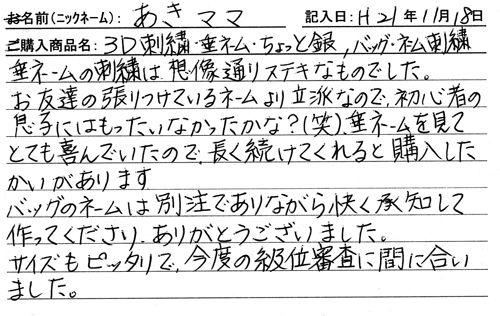 お名前(ニックネーム): あきママ 記入日: H21年11月18日
ご購入商品名: 3D刺繍・垂ネーム・ちょっと銀,バッグ・ネム刺繍
垂ネームの刺繍は想像通りステキなものでした。
お友達の張りつけているネームより立派なので、初心者の
息子にはもったいなかったかな?(笑).垂ネームを見て
とても喜んでいたので、長く続けてくれると購入した
かいがあります
バッグのネームは別注でありながら快く承知して
作ってくださり、ありがとうございました。
サイズもピッタリで、今度の級位審査に間に合い
ました。